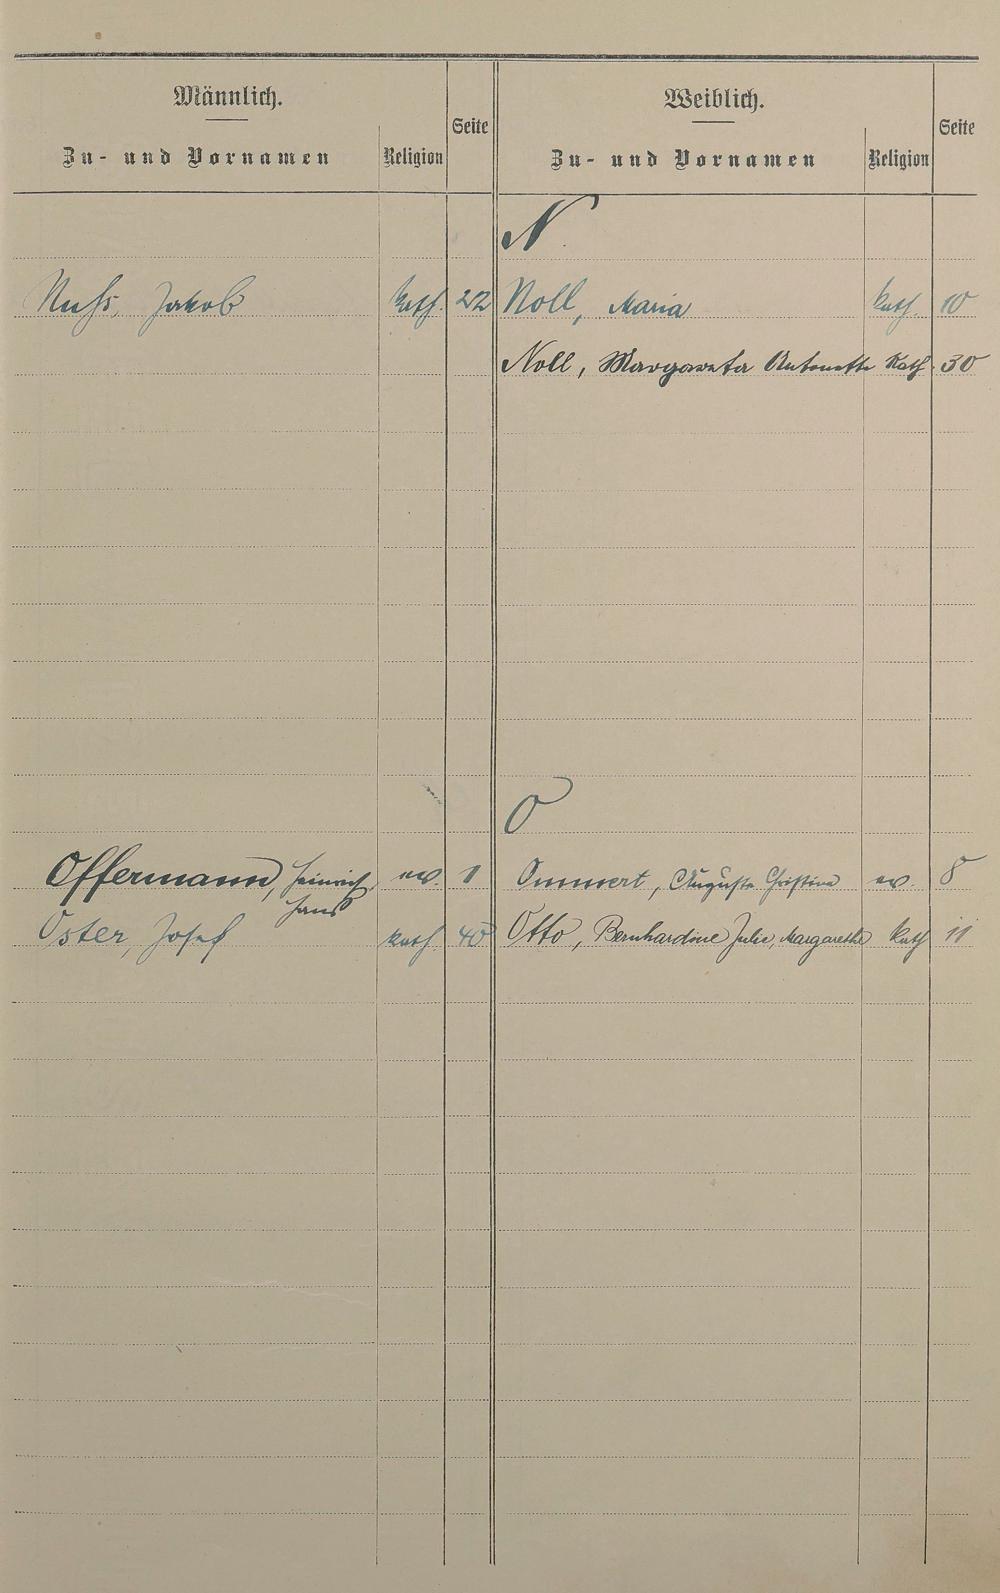 Männlich.
Zu- und Vornamen
Religion
Seite
Weiblich.
Zu- und Vornamen
Religion
Seite
N
Nuß, Jakob kath. 22
Noll, Maria kath. 10
Noll, Margareta Antonette Kath. 30
O
Offermann, Heinrich ev. 1
Hans
Ommert, Auguste Christina ev. 8
Oster, Josef kath. 40
Otto, Bernhardine Julie, Margarethe kath 11